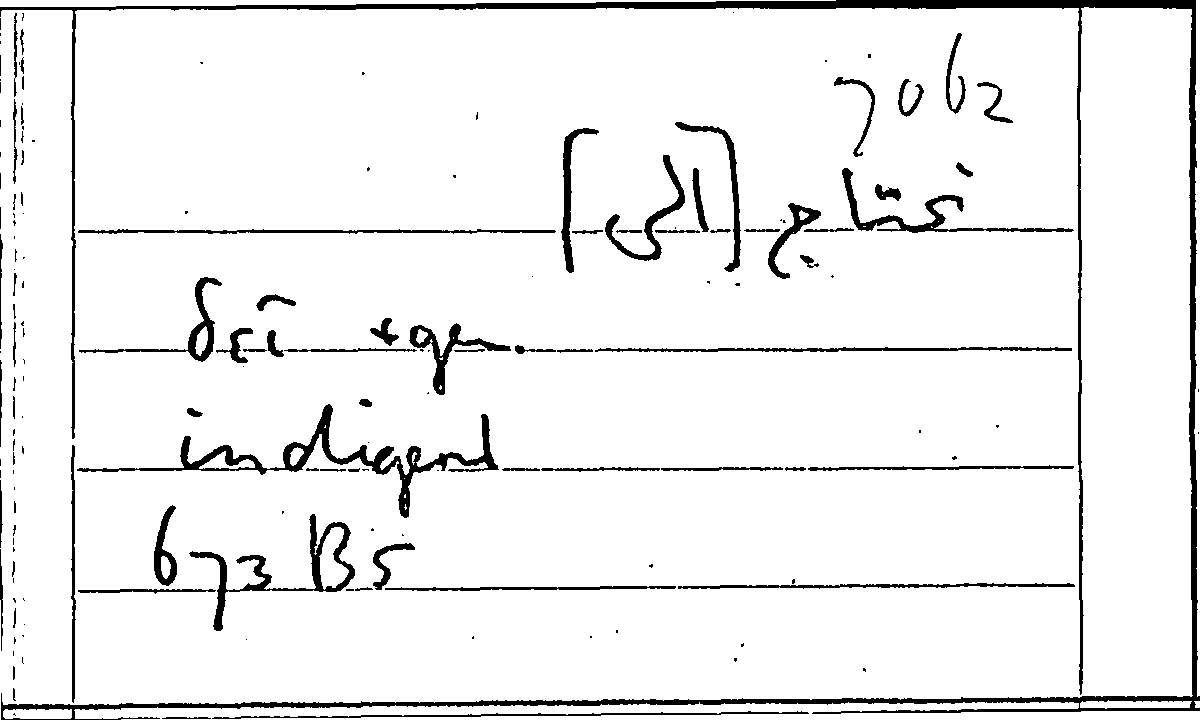 7062
نحتاج [الى]
δεῖ + gen.
indigent
673 B5